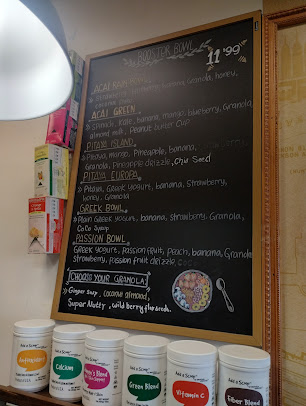 BOOSTER BOWL
11.99
ACAI RAIN BOWL
blueberry, banana, Granola, honey,
ACAI GREEN
Spinach, Kale, banana, mango, blueberry, Granola,
almond milk, Peanut butter Cup
PITAYA ISLAND
Pitaya, mango, Pineapple, banana,
Granola, Pineapple drizzle, Chia Seed
PITAYA EUROPA
Pitaya, Greek Yogurt, banana, Strawberry,
honey, Granola
GREEK BOWL
Plain Greek Yogurt, banana, Strawberry, Granola,
CoCo Syrup
PASSION BOWL
Greek Yogurt, Passion fruit, Peach, banana, Granola
Strawberry, Passion fruit drizzle,
CHOOSE YOUR GRANOLA:
Ginger Snap, coconut almond,
Super Nutty, wild berry flaxseeds.
Add A Scoop
Antioxidant
Add A Scoop
Calcium
Add A Scoop
Blend
Add A Scoop
Green Blend
Add A Scoop
Vitamin C
Add A Scoop
Fiber Blend